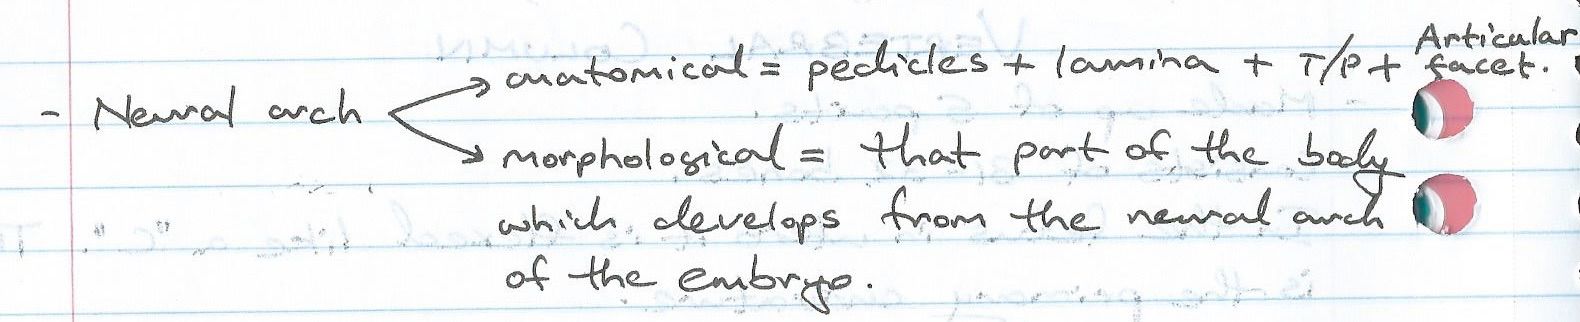 - Neural arch
anatomical = pedicles + lamina + T/P + Articular facet.
morphological = that part of the body
which develops from the neural arch
of the embryo.